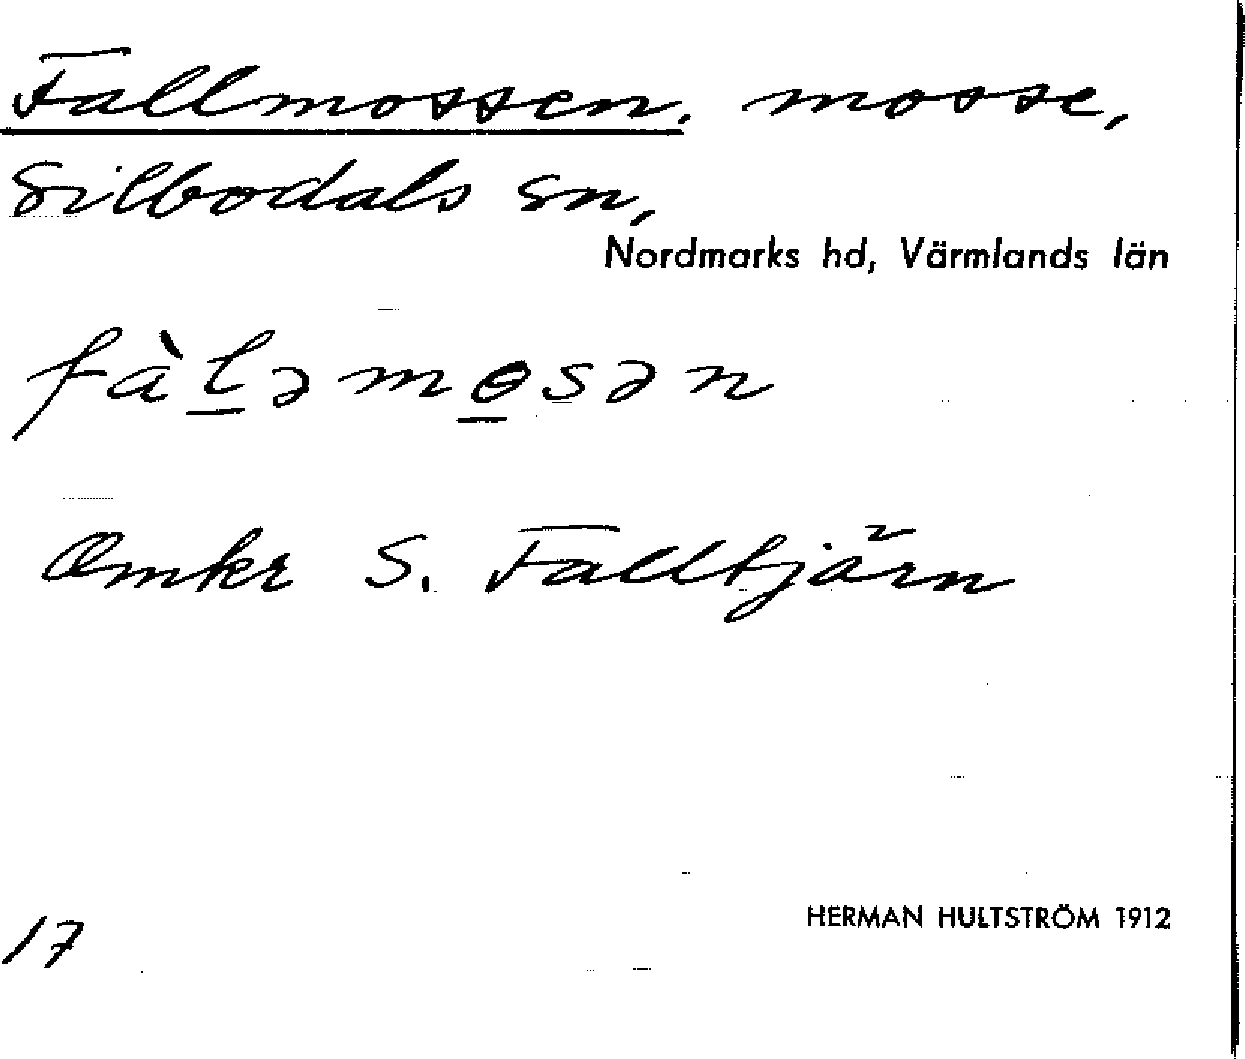 Fallmossen. mosse,
Silbodals sn,
Nordmarks hd, Värmlands län
fàl̠əmɵ̠sən
Omkr S. Falltjärn
HERMAN HULTSTRÖM 1912
17